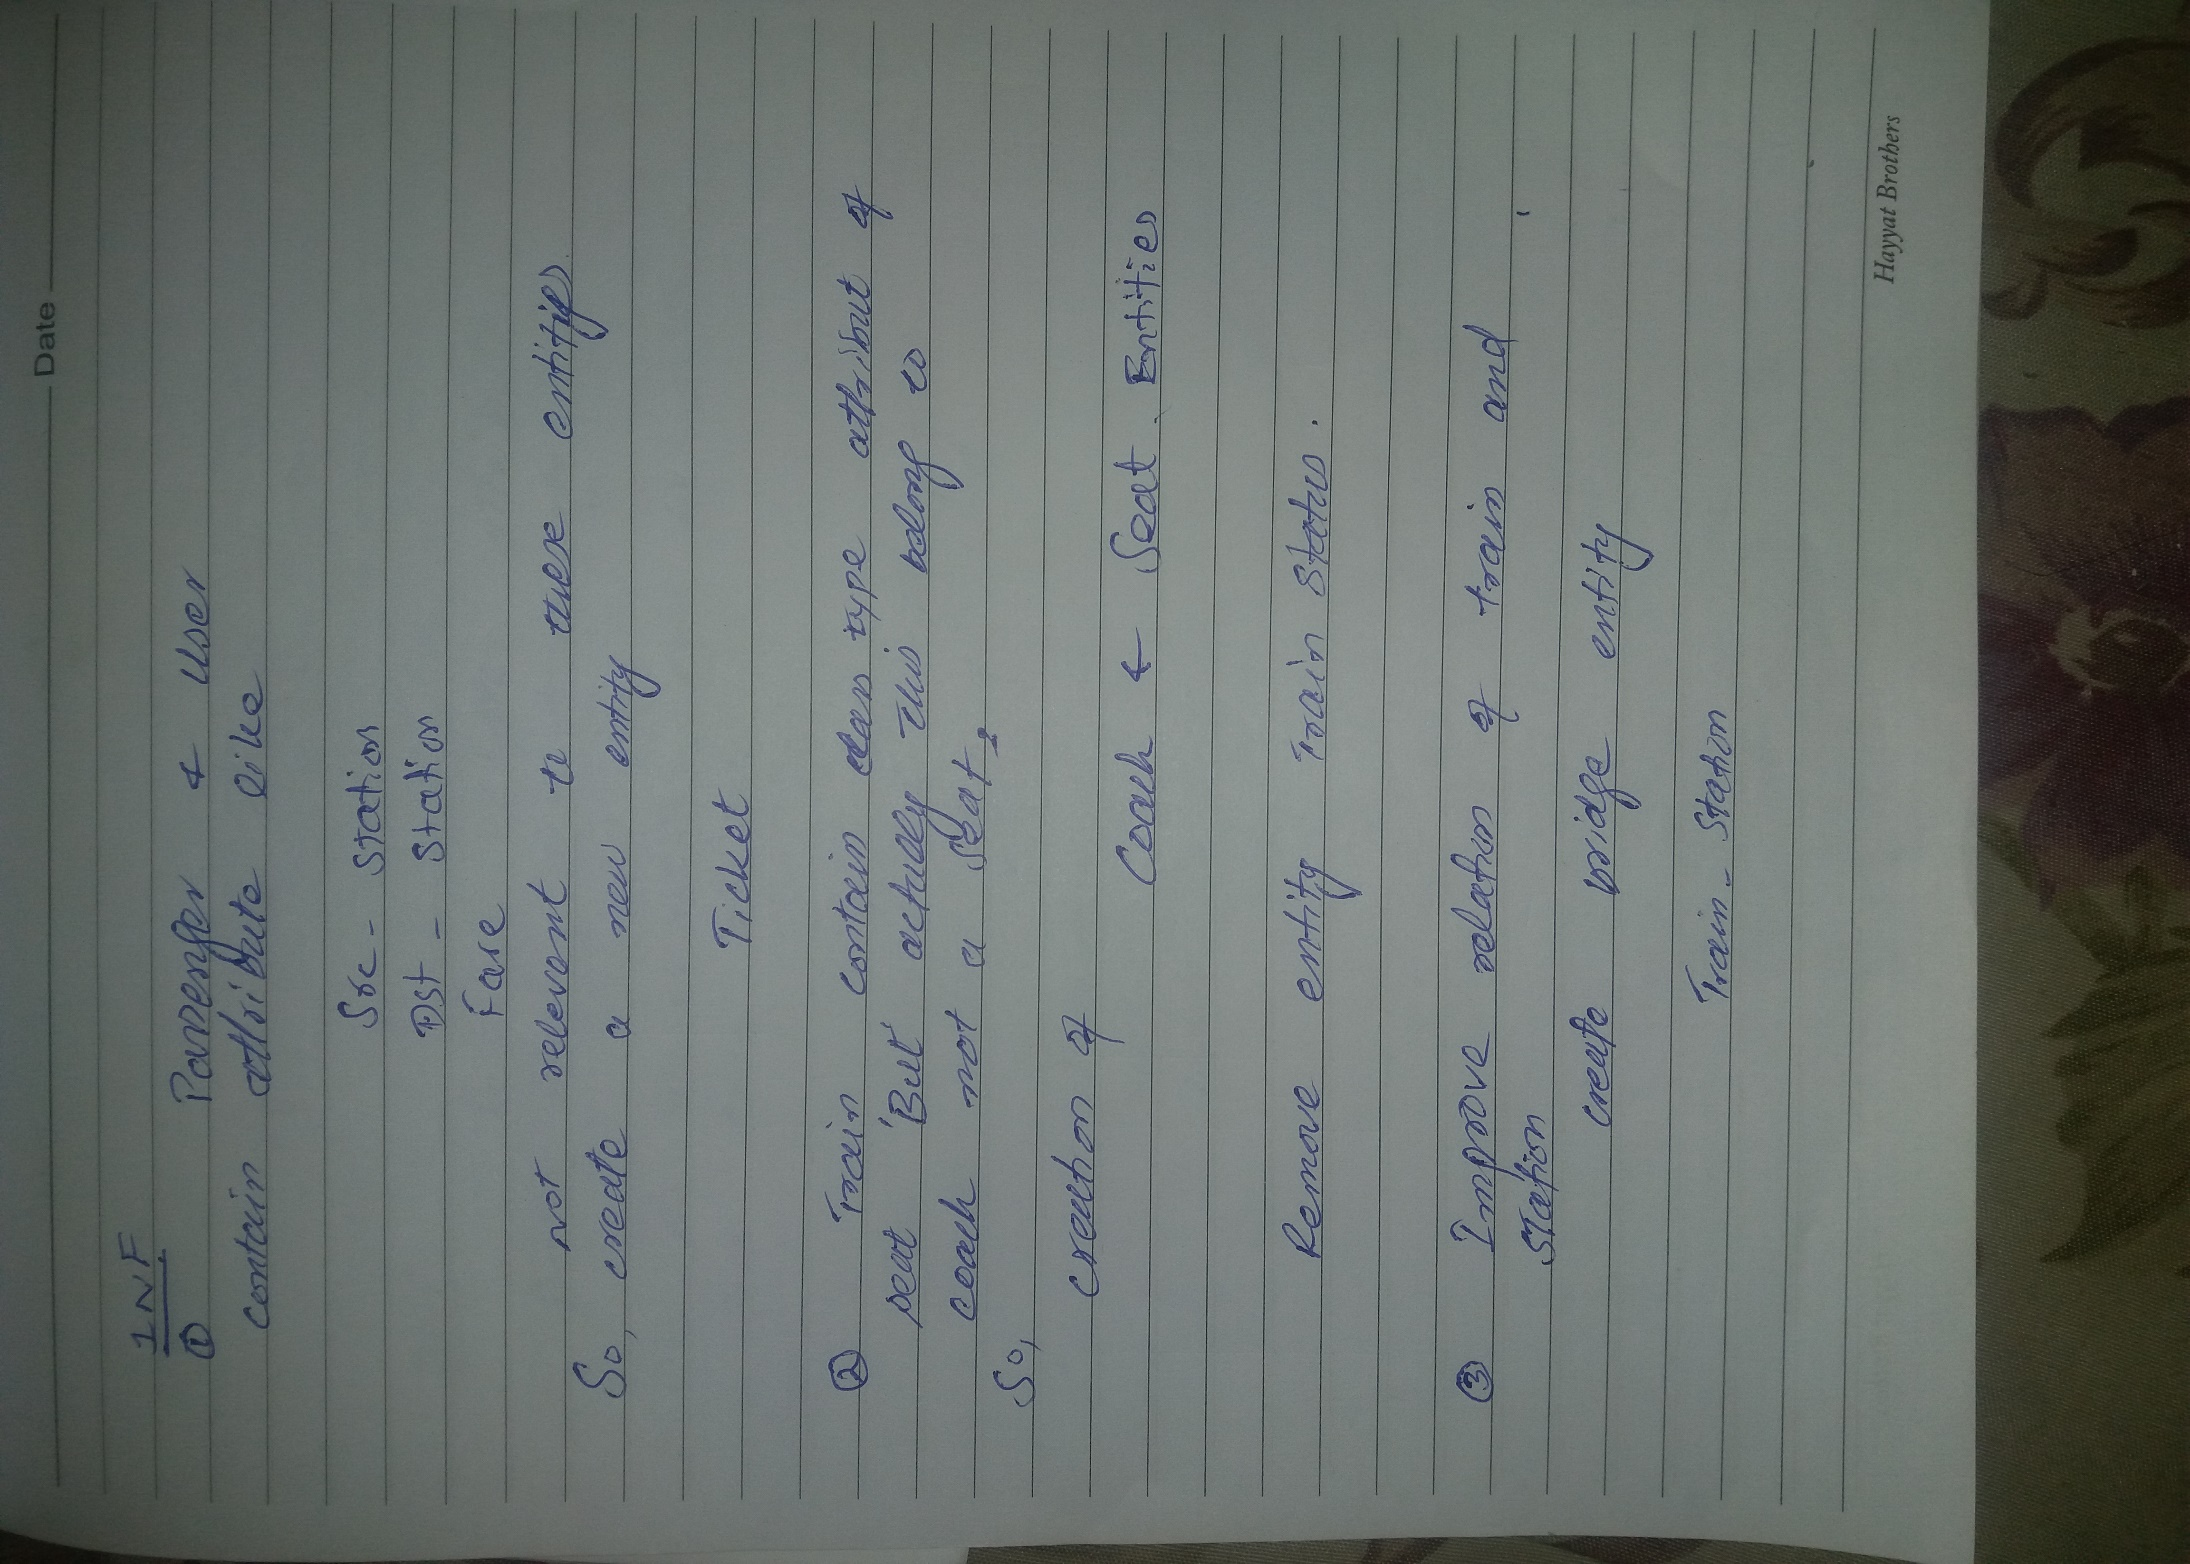 Date
1NF
① Passenger & User
contain attribute like
Src - Station
Dst - Station
Fare
not relevant to these entities.
So, create a new entity
Ticket
② Train contain class type attribut of
seat But actually This belong to
coach not a seat.
So,
creation of
Coach & Seat Entities
Remove entity Train Status.
③ Improve relation of train and
Station
create bridge entity
Train - Station
Hayyat Brothers